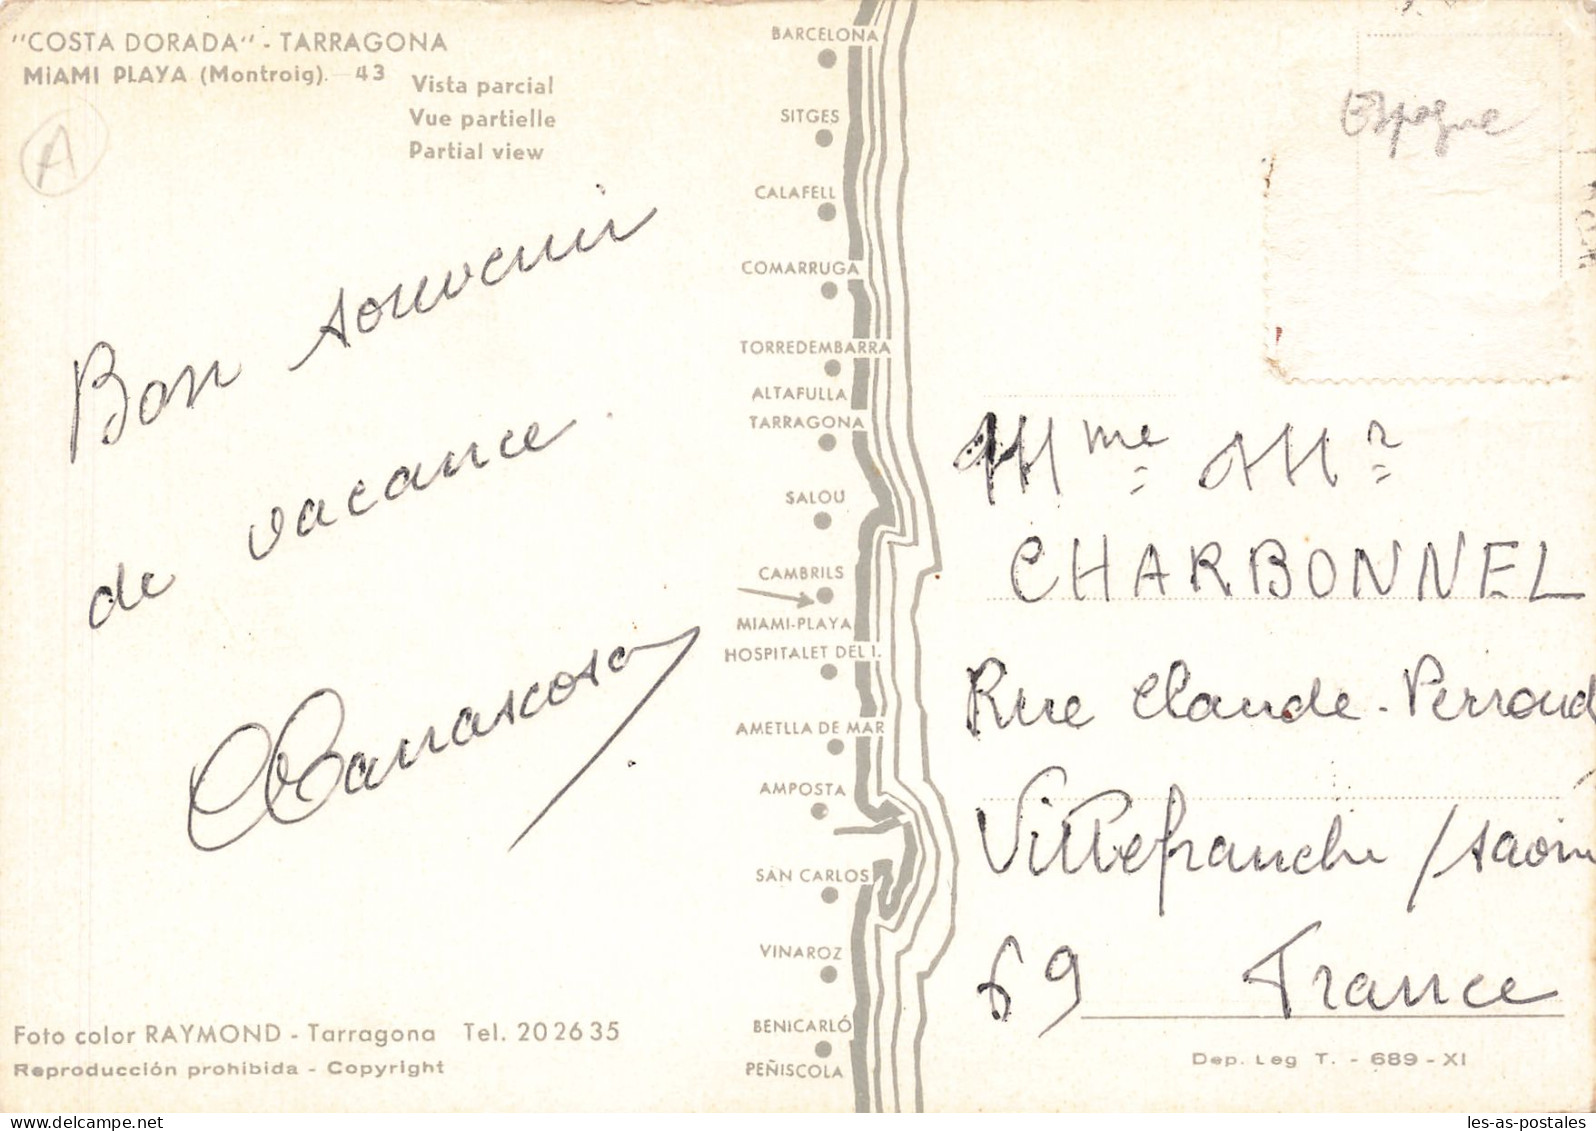 "COSTA DORADA" - TARRAGONA
MIAMI PLAYA (Montroig). - 43
Vista parcial
Vue partielle
Partial view
A
Bon souvenir
de vacance.
BARCELONA
SITGES
CALAFELL
COMARRUGA
TORREDEMBARRA
ALTAFULLA
TARRAGONA
SALOU
CAMBRILS
MIAMI-PLAYA
HOSPITALET DEL I.
AMETLLA DE MAR
AMPOSTA
SAN CARLOS
VINAROZ
BENICARLÓ
PEÑISCOLA
Espagne
Mme Mr
CHARBONNEL
Rue Claude-Perroud
Villefranche / Saône
69 France
Foto color RAYMOND - Tarragona Tel. 202635
Reproducción prohibida - Copyright
Dep. Leg T. - 689 - XI
les-as-postales